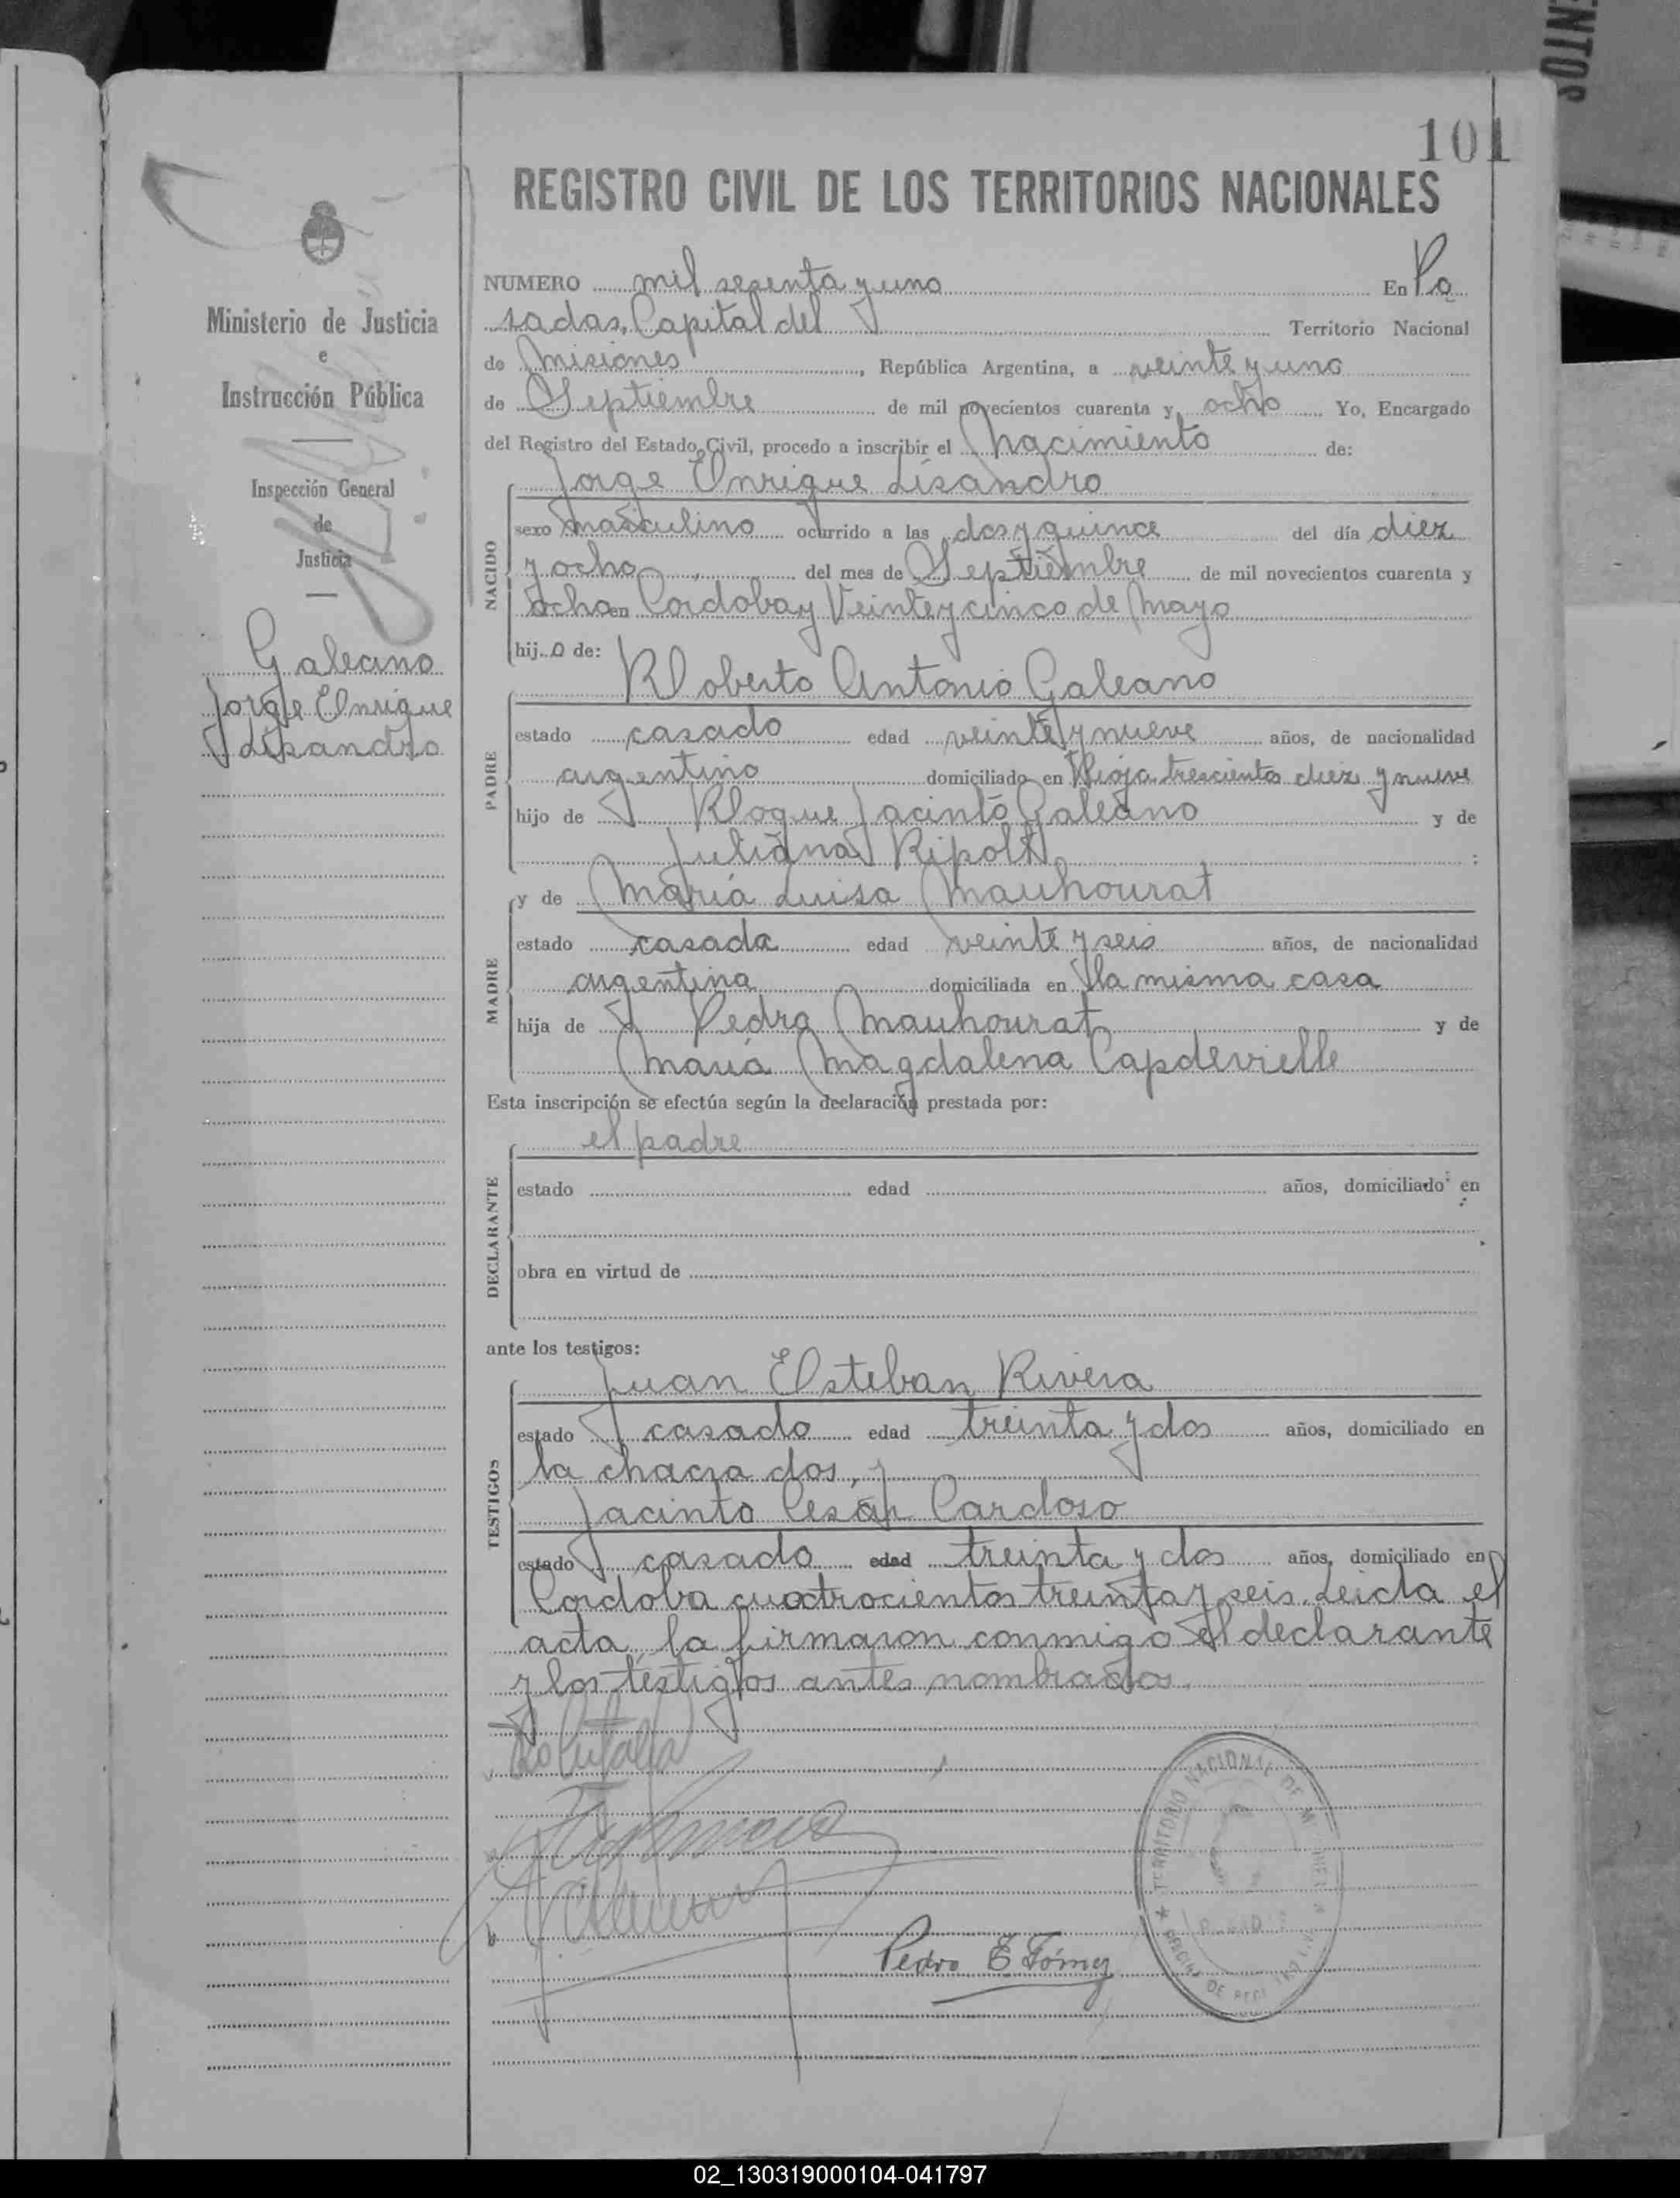 ENTOS
101
REGISTRO CIVIL DE LOS TERRITORIOS NACIONALES
Ministerio de Justicia
e
Instrucción Pública
Inspección General
de
Justicia
Galeano
Jorge Enrique
Lisandro
NUMERO mil sesenta y uno En Po
sadas, Capital del Territorio Nacional
de Misiones, República Argentina, a veinte y uno
de Septiembre de mil novecientos cuarenta y ocho Yo, Encargado
del Registro del Estado Civil, procedo a inscribir el Nacimiento de:
Jorge Enrique Lisandro
NACIDO
sexo masculino ocurrido a las dos y quince del día diez
y ocho del mes de Septiembre de mil novecientos cuarenta y
ocho en Cordoba y Veinte y cinco de Mayo
hijo de:
Roberto Antonio Galeano
PADRE
estado casado edad veinte y nueve años, de nacionalidad
argentino domiciliado en Rioja trescientos diez y nueve
hijo de Roque Jacinto Galeano y de
Juliana Ripoll :
y de María Luisa Mauhourat
MADRE
estado casada edad veinte y seis años, de nacionalidad
argentina domiciliada en la misma casa
hija de Pedro Mauhourat y de
María Magdalena Capdevielle
Esta inscripción se efectúa según la declaración prestada por:
el padre
DECLARANTE
estado edad años, domiciliado en
obra en virtud de
ante los testigos:
Juan Esteban Rivera
TESTIGOS
estado casado edad treinta y dos años, domiciliado en
la chacra dos, y
Jacinto César Cardoso
estado casado edad treinta y dos años, domiciliado en
Cordoba cuatrocientos treinta y seis. Leida el
acta, la firmaron conmigo el declarante
y los testigos antes nombrados.
Pedro E Gómez
TERRITORIO NACIONAL DE
02_130319000104-041797